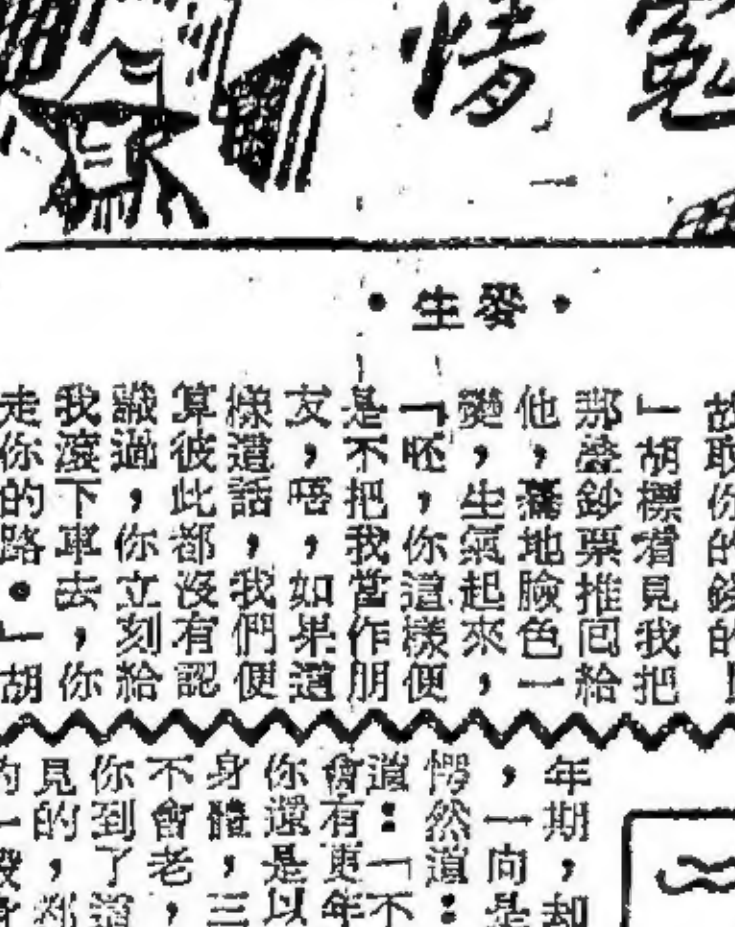 冤情
•麥生•
故取你的錢的
」胡標看見我把
那疊鈔票推囘給
他,驀地臉色一
變,生氣起來,
「呸,你這樣便
是不把我當作朋
友,唔,如果這
樣這話,我們便
算彼此都沒有認
識過,你立刻給
我滾下車去,你
走你的路。」胡
年期,却
,一向是
愕然道:
道:「不
會有更年
你還是以
身體,三
不會老,
你到了這
見的,都